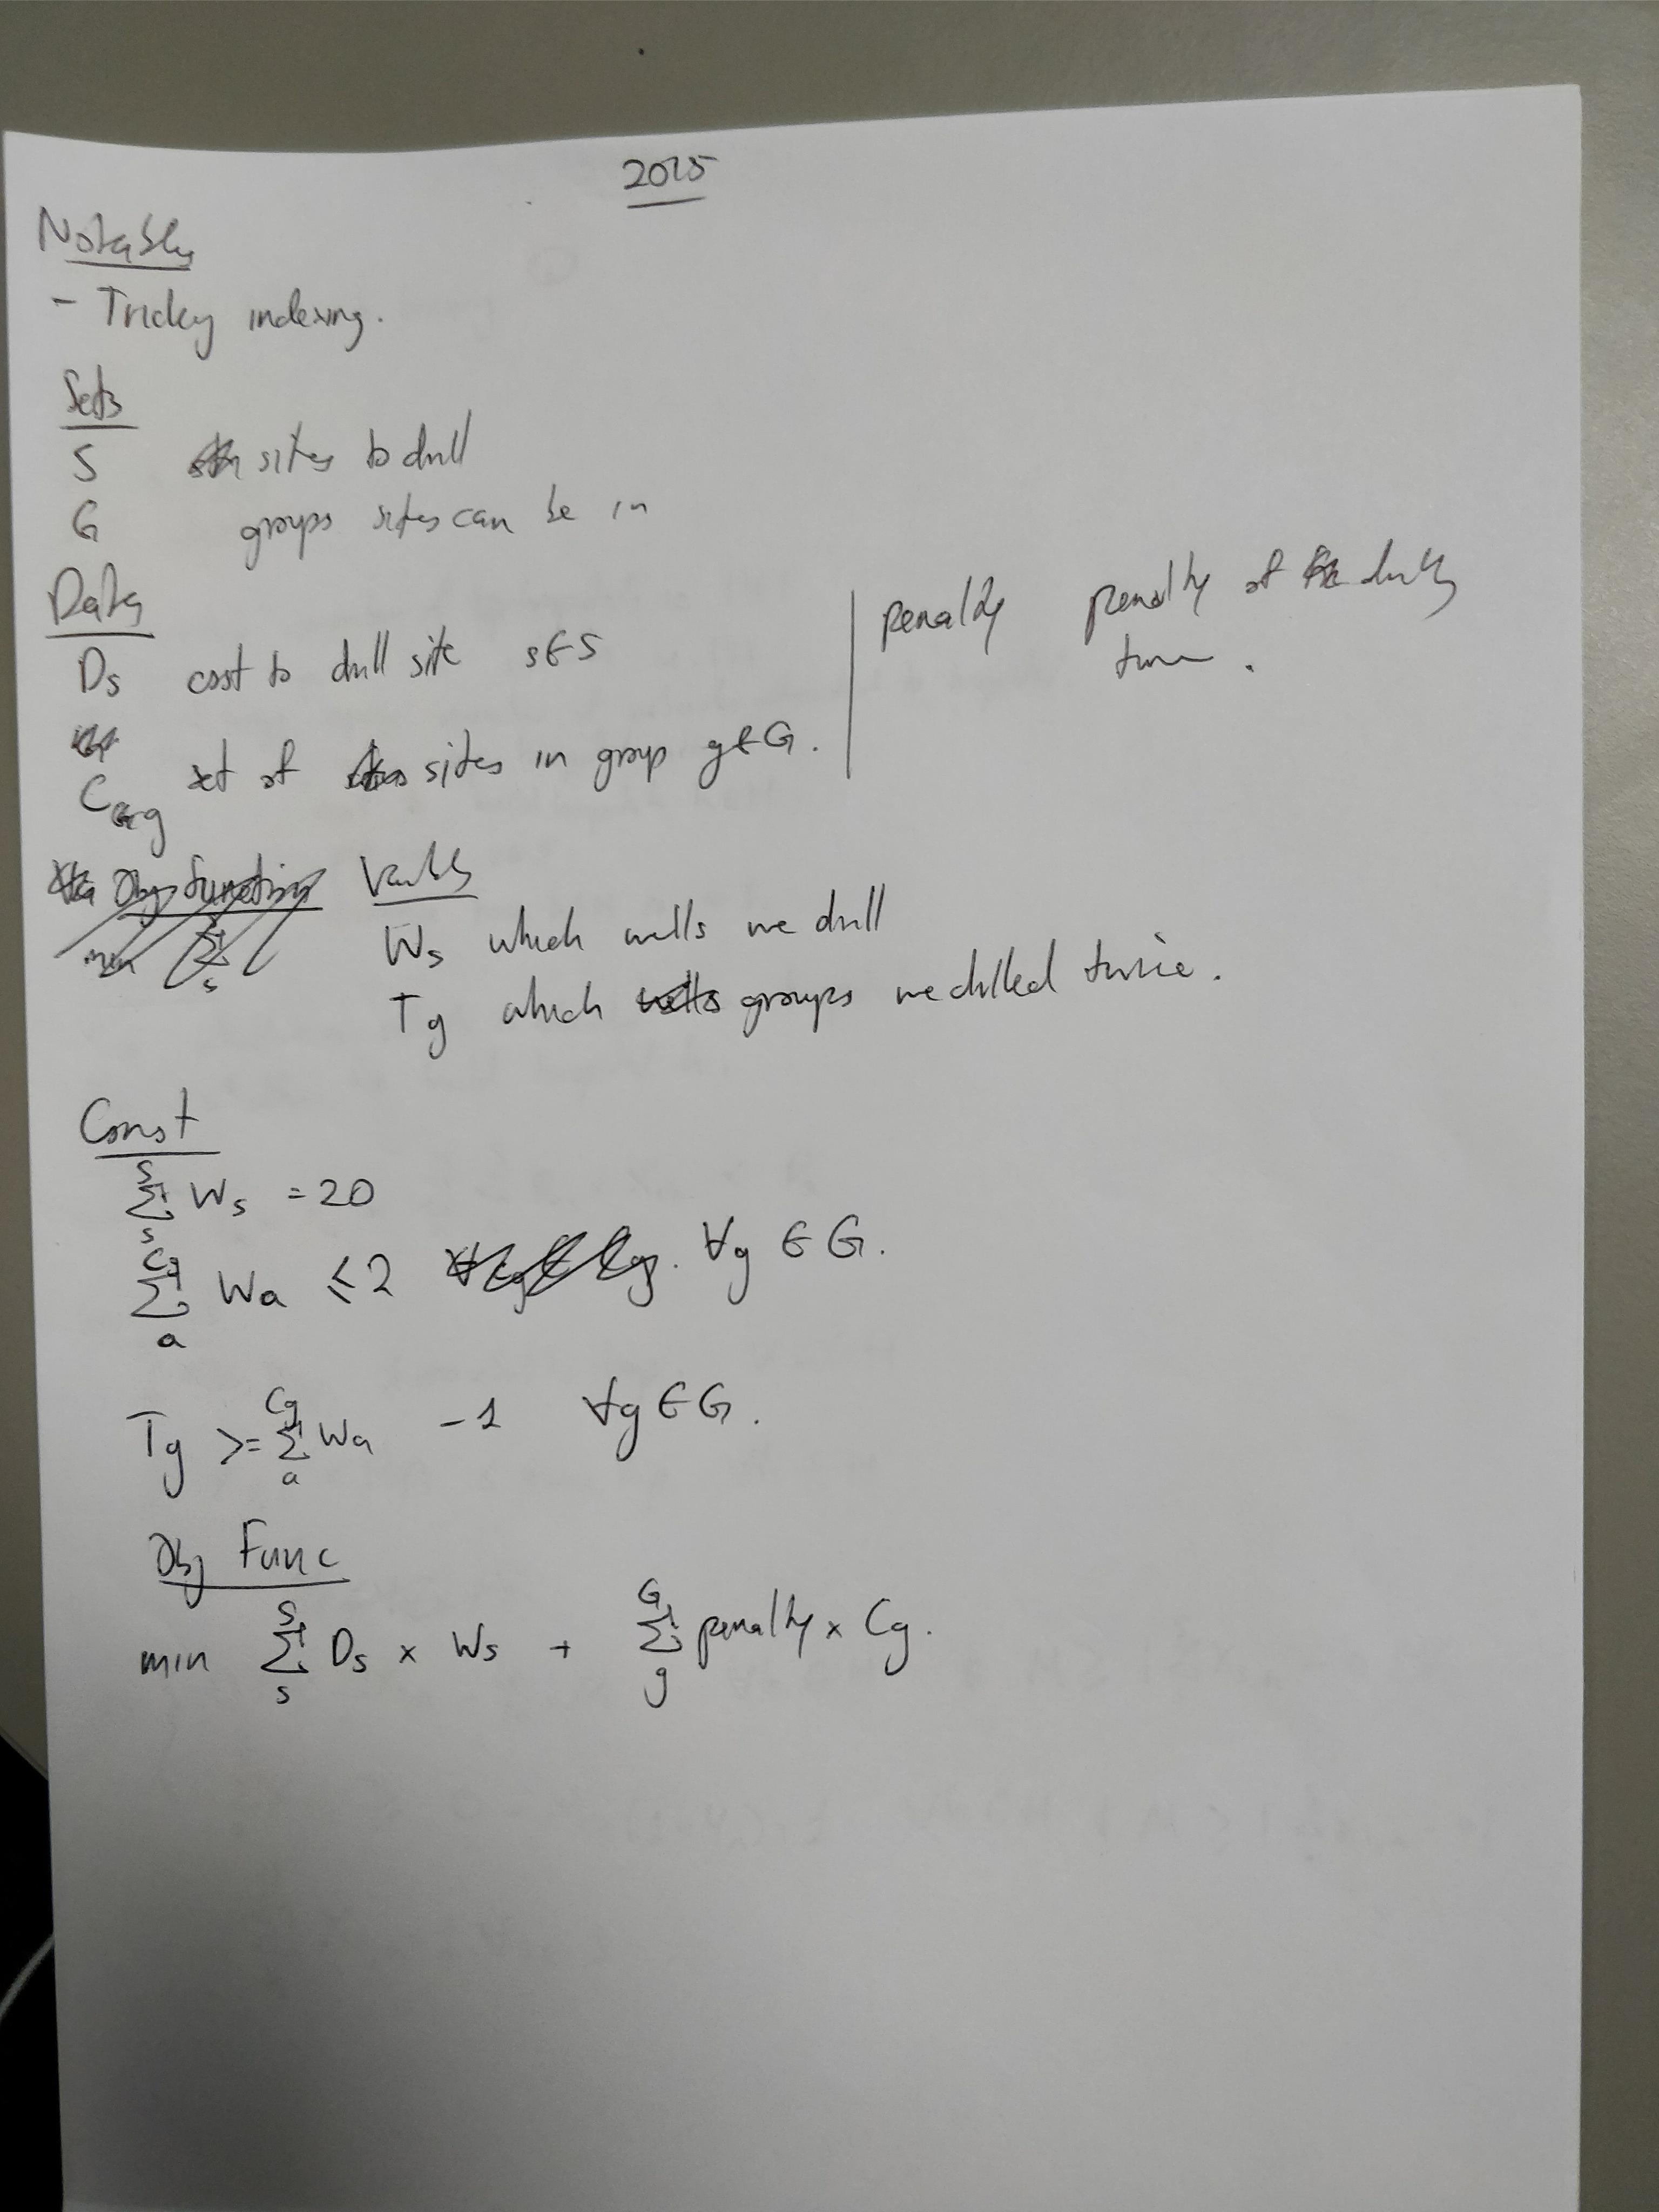 2015
Notable
- Tricky indexing.
Sets
S sites to drill
G groups sites can be in
Data
Ds cost to drill site s∈S
Cg set of sites in group g∈G.
penalty penalty of drilling
twice.
Obj function
min Σ s
Variables
Ws which wells we drill
Tg which wells groups we drilled twice.
Const
S Σ s Ws = 20
Cg Σ a Wa ≤ 2 ∀g ∈ G.
Tg >= Cg Σ a Wa - 1 ∀g ∈ G.
Obj Func
min S Σ s Ds × Ws + G Σ g penalty × Cg.